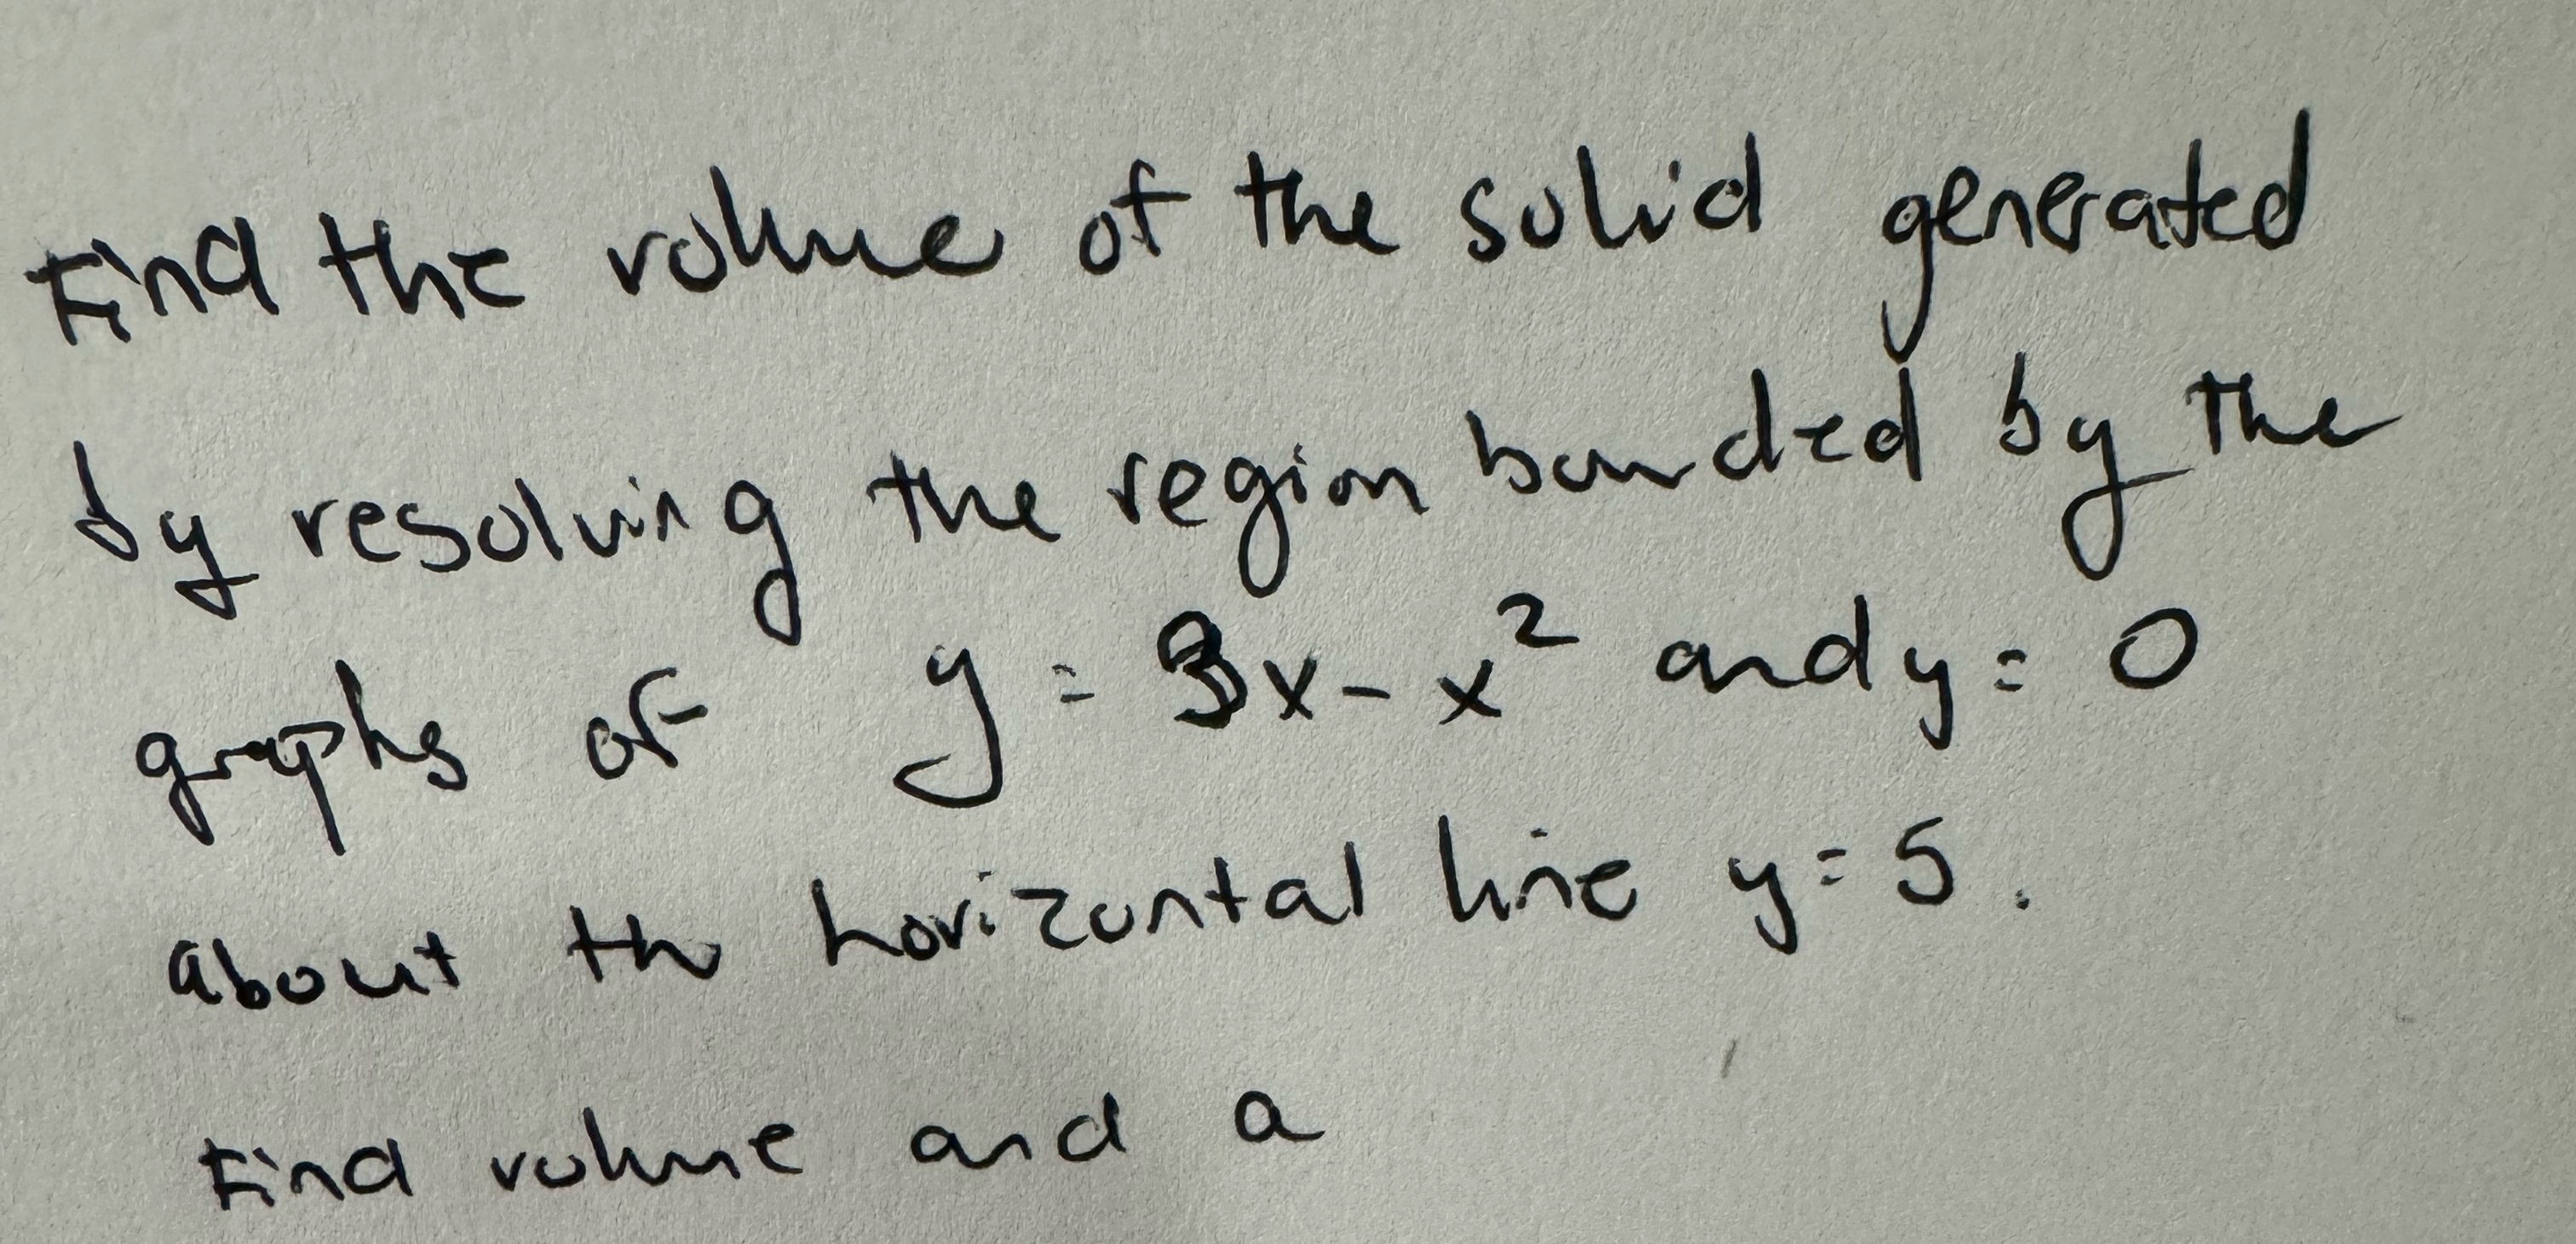 Find the volume of the solid generated
by resolving the region bounded by the
graphs of y = 3x - x² and y = 0
about th horizontal line y = 5.
Find volume and a